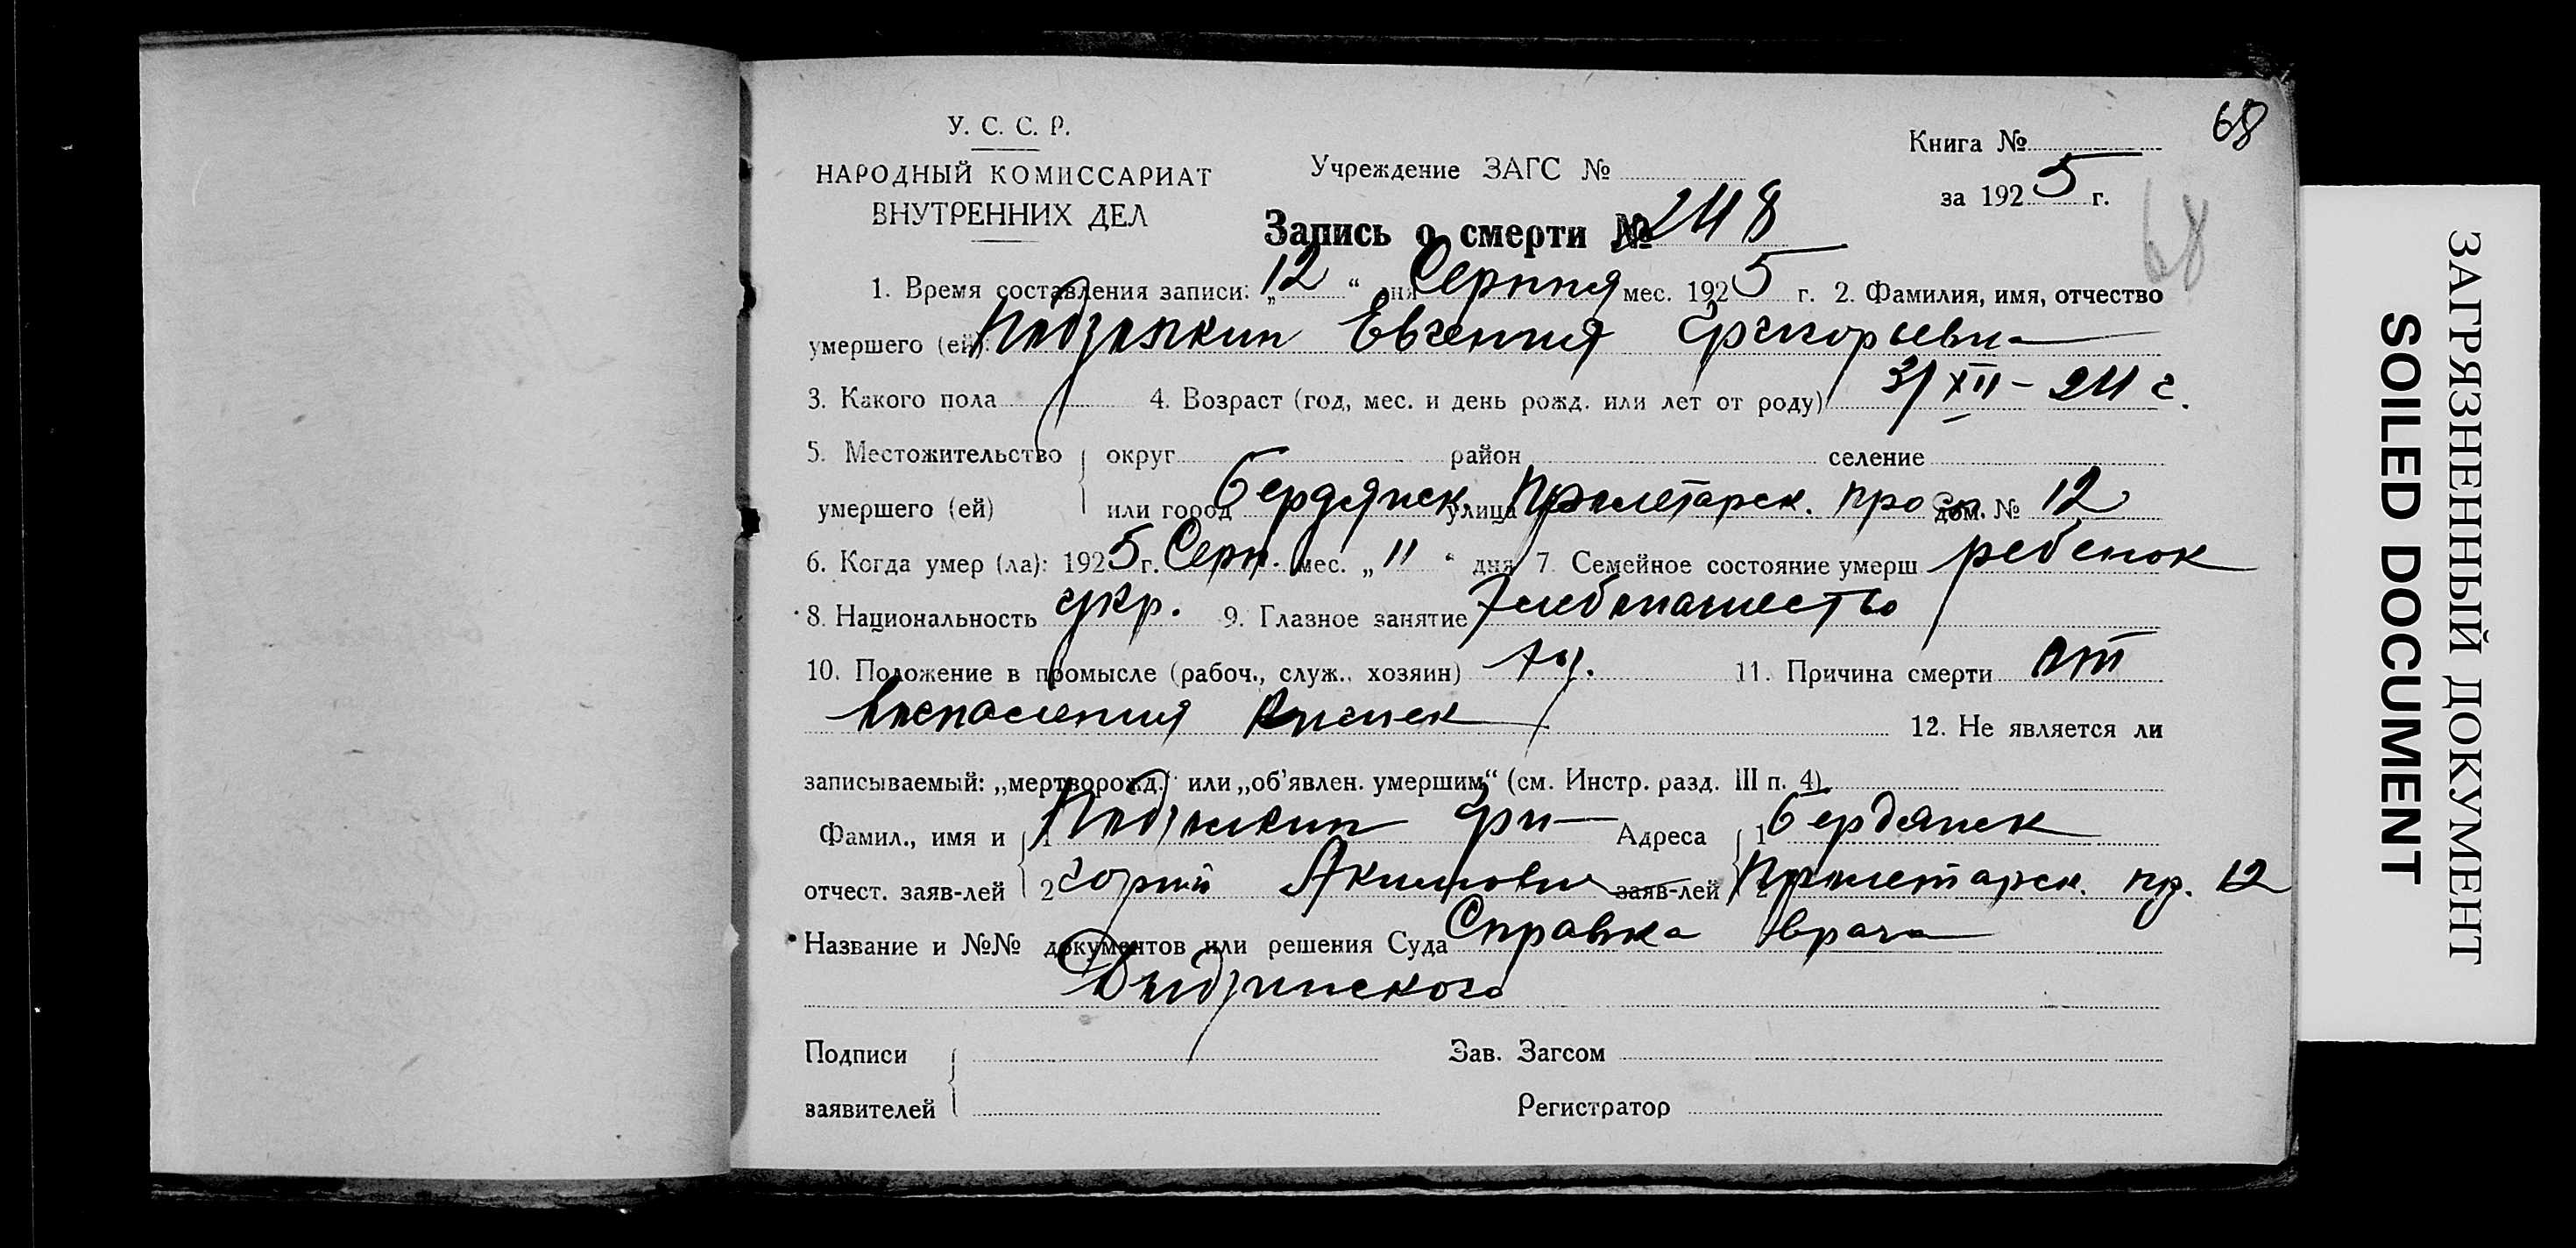 68
У. С. С. Р.
НАРОДНЫЙ КОМИССАРИАТ
ВНУТРЕННИХ ДЕЛ
Учреждение ЗАГС №
Книга №
за 1925 г.
68
Запись о смерти № 248
1. Время составления записи: „12“ дня Серпня мес. 1925 г. 2. Фамилия, имя, отчество
умершего (ей): Евгения Григорьевна
3. Какого пола 4. Возраст (год, мес. и день рожд. или лет от роду) 31 XII - 24 г.
5. Местожительство округ район селение
умершего (ей) или город Бердянск улица Пролетарск. просп. дом. № 12
6. Когда умер (ла): 1925 г. Серп. мес. „11“ дня 7. Семейное состояние умерш ребенок
8. Национальность укр. 9. Главное занятие Хлебопашество
10. Положение в промысле (рабоч., служ., хозяин) хоз. 11. Причина смерти от
воспаления кишек 12. Не является ли
записываемый: „мертворожд.“ или „об’явлен. умершим“ (см. Инстр. разд. III п. 4)
Фамил., имя и 1 Гри- Адреса 1 Бердянск
отчест. заяв-лей 2 горий Акимович заяв-лей 2 Пролетарск. пр. 12
Название и №№ документов или решения Суда Справка врача
Подписи Зав. Загсом
заявителей Регистратор
ЗАГРЯЗНЕННЫЙ ДОКУМЕНТ
SOILED DOCUMENT